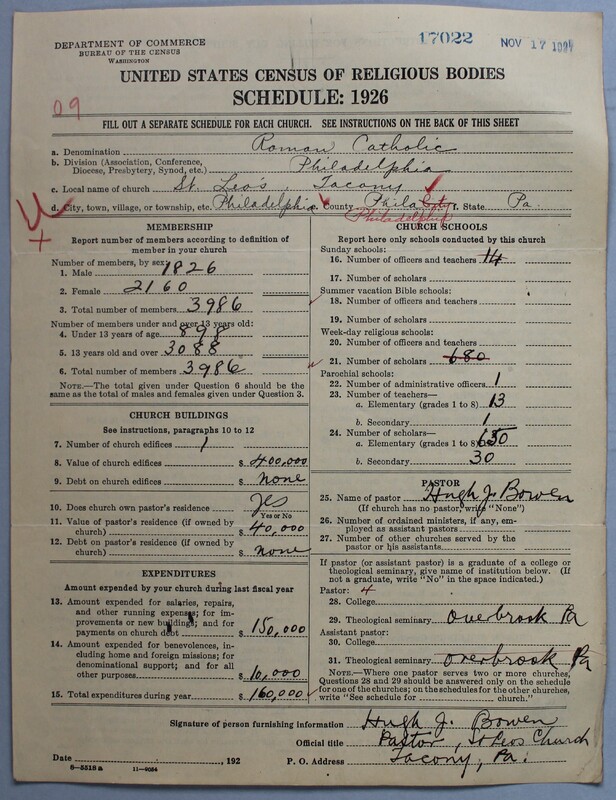 17022
NOV 17 1927
DEPARTMENT OF COMMERCE
BUREAU OF THE CENSUS
WASHINGTON
UNITED STATES CENSUS OF RELIGIOUS BODIES
SCHEDULE: 1926
09
FILL OUT A SEPARATE SCHEDULE FOR EACH CHURCH. SEE INSTRUCTIONS ON THE BACK OF THIS SHEET
a. Denomination Roman Catholic
b. Division (Association, Conference,
Diocese, Presbytery, Synod, etc.) Philadelphia
c. Local name of church St. Leo's, Tacony
d. City, town, village, or township, etc. Philadelphia e. County Phila City f. State Pa.
Philadelphia
MEMBERSHIP
Report number of members according to definition of
member in your church
Number of members, by sex:
1. Male 1826
2. Female 2160
3. Total number of members 3986
Number of members under and over 13 years old:
4. Under 13 years of age 898
5. 13 years old and over 3088
6. Total number of members 3986
NOTE.—The total given under Question 6 should be the
same as the total of males and females given under Question 3.
CHURCH BUILDINGS
See instructions, paragraphs 10 to 12
7. Number of church edifices 1
8. Value of church edifices $ 400,000
9. Debt on church edifices $ none
10. Does church own pastor's residence yes
Yes or No
11. Value of pastor's residence (if owned by
church) $ 40,000
12. Debt on pastor's residence (if owned by
church) $ none
EXPENDITURES
Amount expended by your church during last fiscal year
13. Amount expended for salaries, repairs,
and other running expenses; for im-
provements or new buildings; and for
payments on church debt $ 150,000
14. Amount expended for benevolences, in-
cluding home and foreign missions; for
denominational support; and for all
other purposes $ 10,000
15. Total expenditures during year $ 160,000
CHURCH SCHOOLS
Report here only schools conducted by this church
Sunday schools:
16. Number of officers and teachers 14
17. Number of scholars
Summer vacation Bible schools:
18. Number of officers and teachers
19. Number of scholars
Week-day religious schools:
20. Number of officers and teachers
21. Number of scholars 680
Parochial schools:
22. Number of administrative officers 1
23. Number of teachers—
a. Elementary (grades 1 to 8) 13
b. Secondary 1
24. Number of scholars—
a. Elementary (grades 1 to 8) 650
b. Secondary 30
PASTOR
25. Name of pastor Hugh J. Bowen
(If church has no pastor, write "None")
26. Number of ordained ministers, if any, em-
ployed as assistant pastors
27. Number of other churches served by the
pastor or his assistants
If pastor (or assistant pastor) is a graduate of a college or
theological seminary, give name of institution below. (If
not a graduate, write "No" in the space indicated.)
Pastor: 4
28. College
29. Theological seminary Overbrook Pa
Assistant pastor:
30. College
31. Theological seminary Overbrook Pa
NOTE.—Where one pastor serves two or more churches,
Questions 28 and 29 should be answered only on the schedule
for one of the churches; on the schedules for the other churches,
write "See schedule for church."
Signature of person furnishing information Hugh J. Bowen
Official title Pastor, St Leos Church
Date , 192 P. O. Address Tacony, Pa.
8—5518 a 11—9054